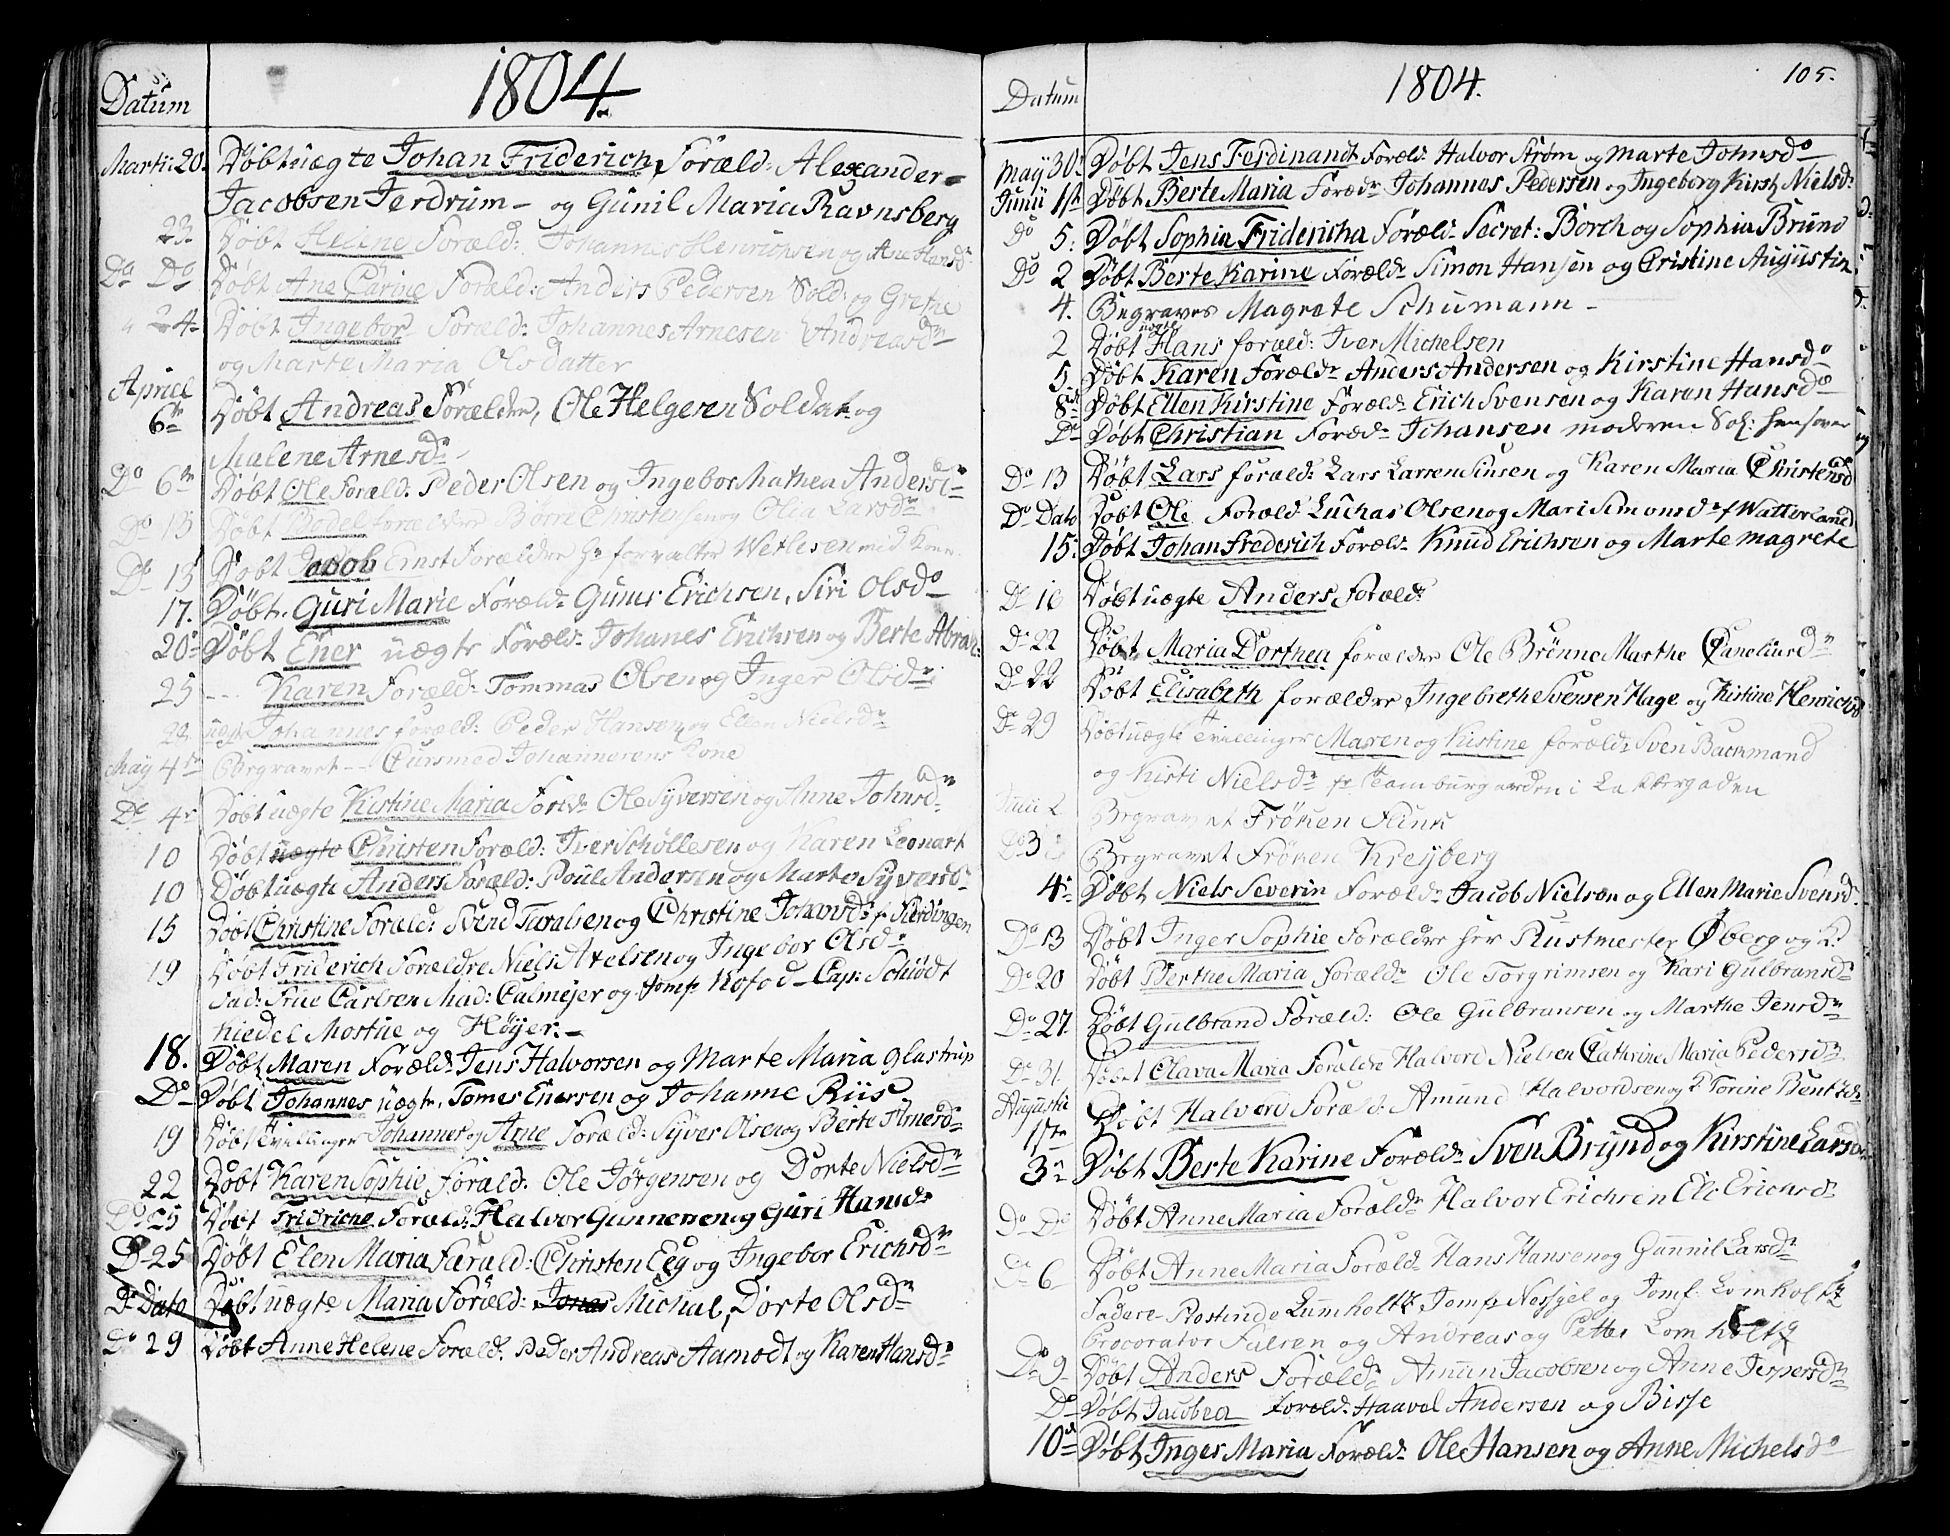 Datum 1804.
Martii 20. Døbt uægte Johan Friderich, Foræld: Alexander
Jacobsen Jerdrum - og Gunil Maria Ravnsberg
23. Døbt Helene Foræld: Johannes Henrichsen og Ane Hansd
Do Do Døbt Ane Carine Foræld: Anders Pedersen Sold: og Grethe
24 Døbt Ingebor Foræld: Johannes Arnesen Andreasdr
og Marte Maria Olsdatter
Apriel
6te Døbt Andreas Forældre, Ole Helgesen Soldat og
Malene Arnesdr
Do 6te Døbt Ole Foræld: Peder Olsen og Ingebor Mathea Andersd
Do 13 Døbt Bodel forældre Børre Christensen og Olia Larsdr
Do 15 Døbt Jacob Ernst Forældre Hr forvalter Wetlesen med Kone
17. Døbt. Guri Marie Foræld. Gunes Erichsen, Siri Olsdo
20 Døbt Ener uægte Foræld. Johanes Erichsen og Berte Abrah:
25 -- Karen Foræld: Tommas Olsen og Inger Olsdr
22 uægte Johannes foræld: Peder Hansen og Ellen Nielsdr
May 4te Begravet -- Johannesens Kone
Do 4 Døbt uægte Kirstine Maria Foræld. Ole Syversen og Anne Johnsdr
10 Døbt uægte Christen Foræld: Iver Schøllesen og Karen Leonart
10 Døbt uægte Anders Foræld: Poul Andersen og Marte Syversd
15 Døbt Christine Foræld: Svend Taralsen og Christine Johansd f. Fierdingen
19 Døbt Friderich Forældre Niels Axelsen og Ingebor Olsdr
Fad: Frue Carlsen Mad: Calmejer og Jomf: Kofod - Cap: Schiødt
Niedel Mostue og Høyer: -
18. Døbt Maren Foræld. Jens Halvorsen og Marte Maria Glastrup
Do Døbt Johannes uægte, Tomes Enersen og Johanne Riis
19 Døbt Tvillinger Johannes og Arne Foræld: Syver Olsen og Berte Arnesdr
22 Døbt Karen Sophie, Foræld: Ole Jørgensen og Dorte Nielsdr
Do 25 Døbt Fridriche Foræld: Halvor Gunnersen og Guri Hansdr
Do 25 Døbt Elen Maria Foræld: Christen Eeg og Ingebor Erichsdr
Do Dato Døbt uægte Maria Foræld: Jonas Michal, Dorte Olsdr
Do 29 Døbt Anne Helene Foræld: Peder Andreas Aamodt og Karen Hansdr
Datum 1804. 105.
May 30 Døbt Jens Ferdinandt Foræld: Halvor Strøm og Marte Johnsdo
Junii 1ste Døbt Berte Maria Forædr Johannes Pedersen og Ingeborg Kirst. Nielsd:
Do 5. Døbt Sophia Fridericha Foræld: Secret: Borch og Sophia Bruno
Do 2 Døbt Berte Karine Foræld. Simon Hansen og Cristine Augustin
4. Begraves Magrete Schumann -
2 Døbt uægte Hans foræld: Iver Michelsen
5 Døbt Karen Foræld. Anders Andersen og Kirstine Hansdo
8de Døbt Ellen Kirstine Foræld. Erich Svensen og Karen Hansdo
Do Døbt Christian Foræd. Johansen moderen
Do 13 Døbt Lars foræld: Lars Larsen og Karen Maria Christensd
Do Dato Døbt Ole Foræld Luchas Olsen og Mari Simonsd. f Watterland
15. Døbt Johan Frederich Foræld. Knud Erichsen og Marte Magrete
Do 16 Døbt uægte Anders Foræld:
Do 22 Døbt Maria Dorthea forældre Ole Brønne Marthe
Do 22 Døbt Elisabeth forældre Ingebreth Svensen Hage og Kirstine Henrichsd
Do 29 Døbt uægte Tvillinger Maren og Kirstine foræld: Sven Backmand
og Kirsti Nielsdr fr Hamburgarden i Lakkergaden
Junii 2 Begravet Frøken Flink
Do 3 Begravet Frøken Kreyberg
4 Døbt Niels Severin Foræld. Jacob Nielsen og Ellen Marie Svensd.
Do 13 Døbt Inger Sophie Forældre Her Rustmester Øberg og K:
Do 20 Døbt Berthe Maria foræld. Ole Torgrimsen og Kari Gulbransdr
Do 27. Døbt Gulbrand Foræld: Ole Gulbransen og Marthe Jensdr
Do 31. Døbt Olava Maria Forældre Halvord Nielsen Cathrine Maria Pedersdr
Augustii
1ste Døbt Halvord Foræld: Amund Halvordsen og Torine
3 Døbt Berte Karine Foræld. Sven Brynd og Kirstine Larsdr
Do Do Døbt Anne Maria Foræld. Halvor Erichsen Ele Erichsdr
Do 6 Døbt Anne Maria Foræld. Hans Hansen og Gunnil Larsdr
Fadere Lumholtz Jomf. og Jomf. Lomholtz
Procorator Falsen og Andreas og Petter Lomholtz
Do 9 Døbt Anders Foræld. Amun Jacobsen og Anne Jespersdr
Do Døbt Jacobea Foræld: Haavel Andersen og Birte
10de Døbt Inger Maria Foræld. Ole Hansen og Anne Michelsdo